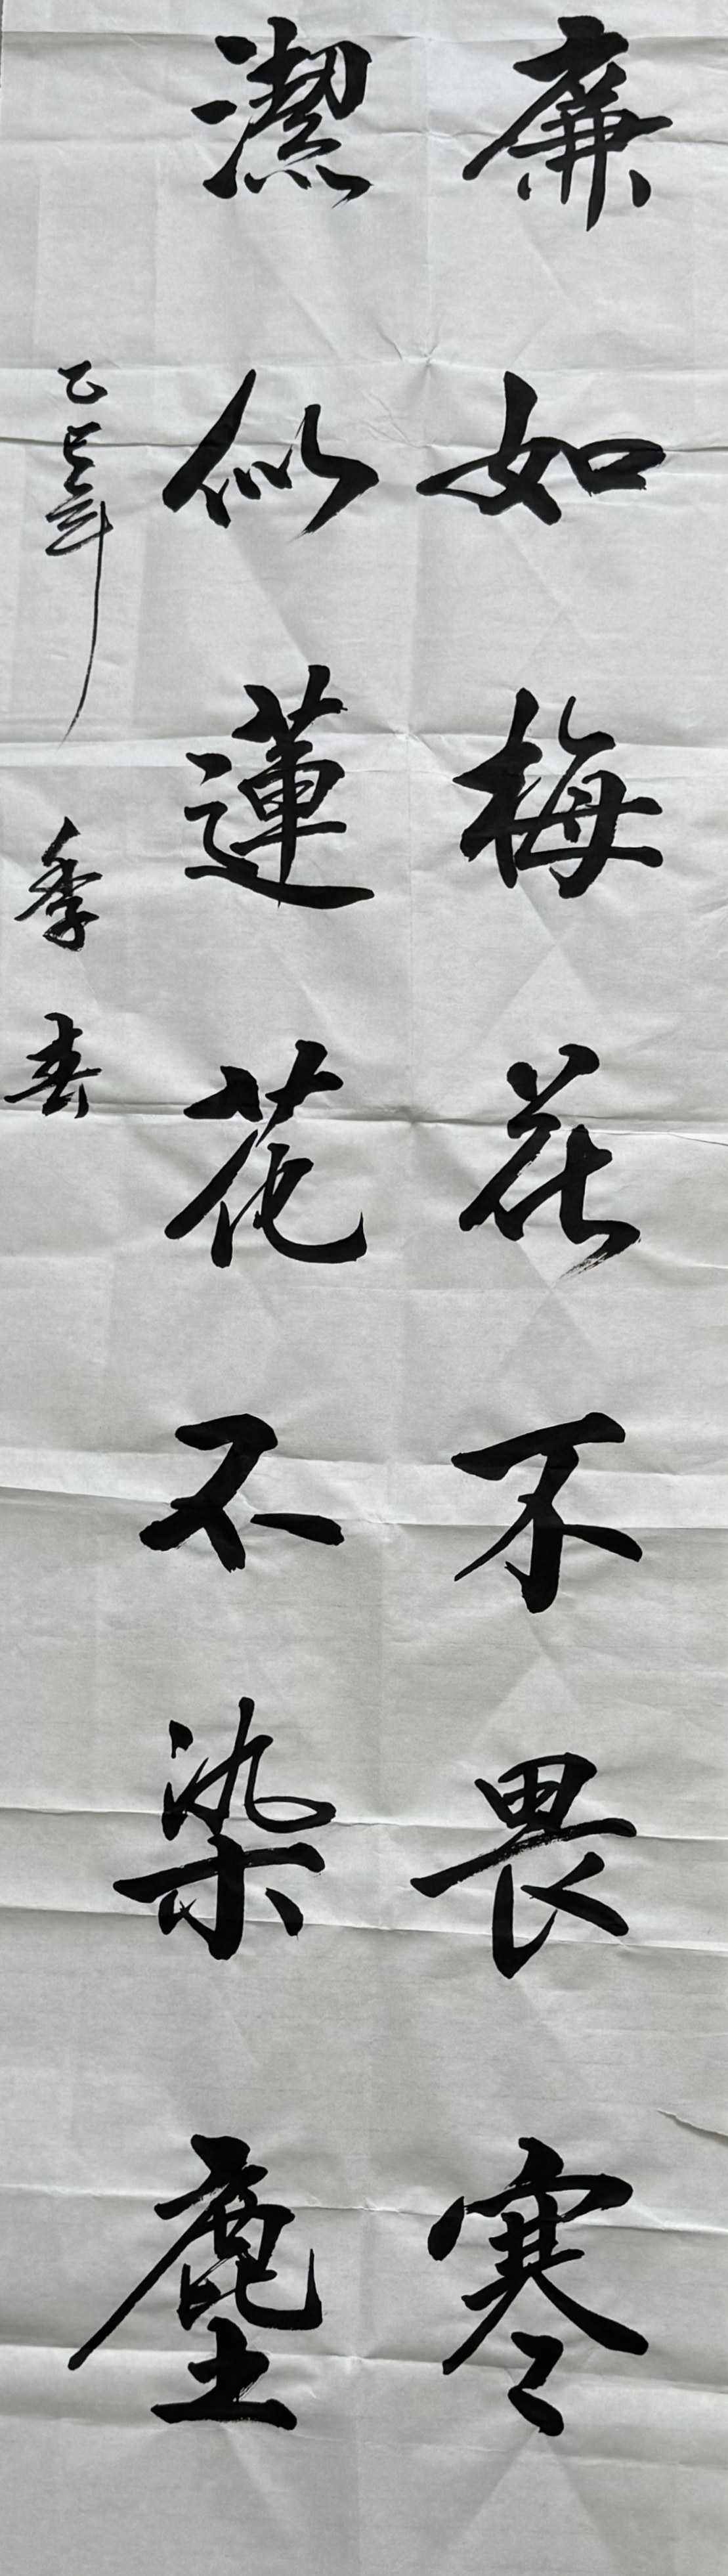 廉如梅花不畏寒
潔似蓮花不染塵
乙巳年季春